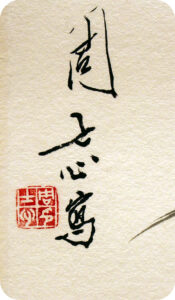 周士心寫